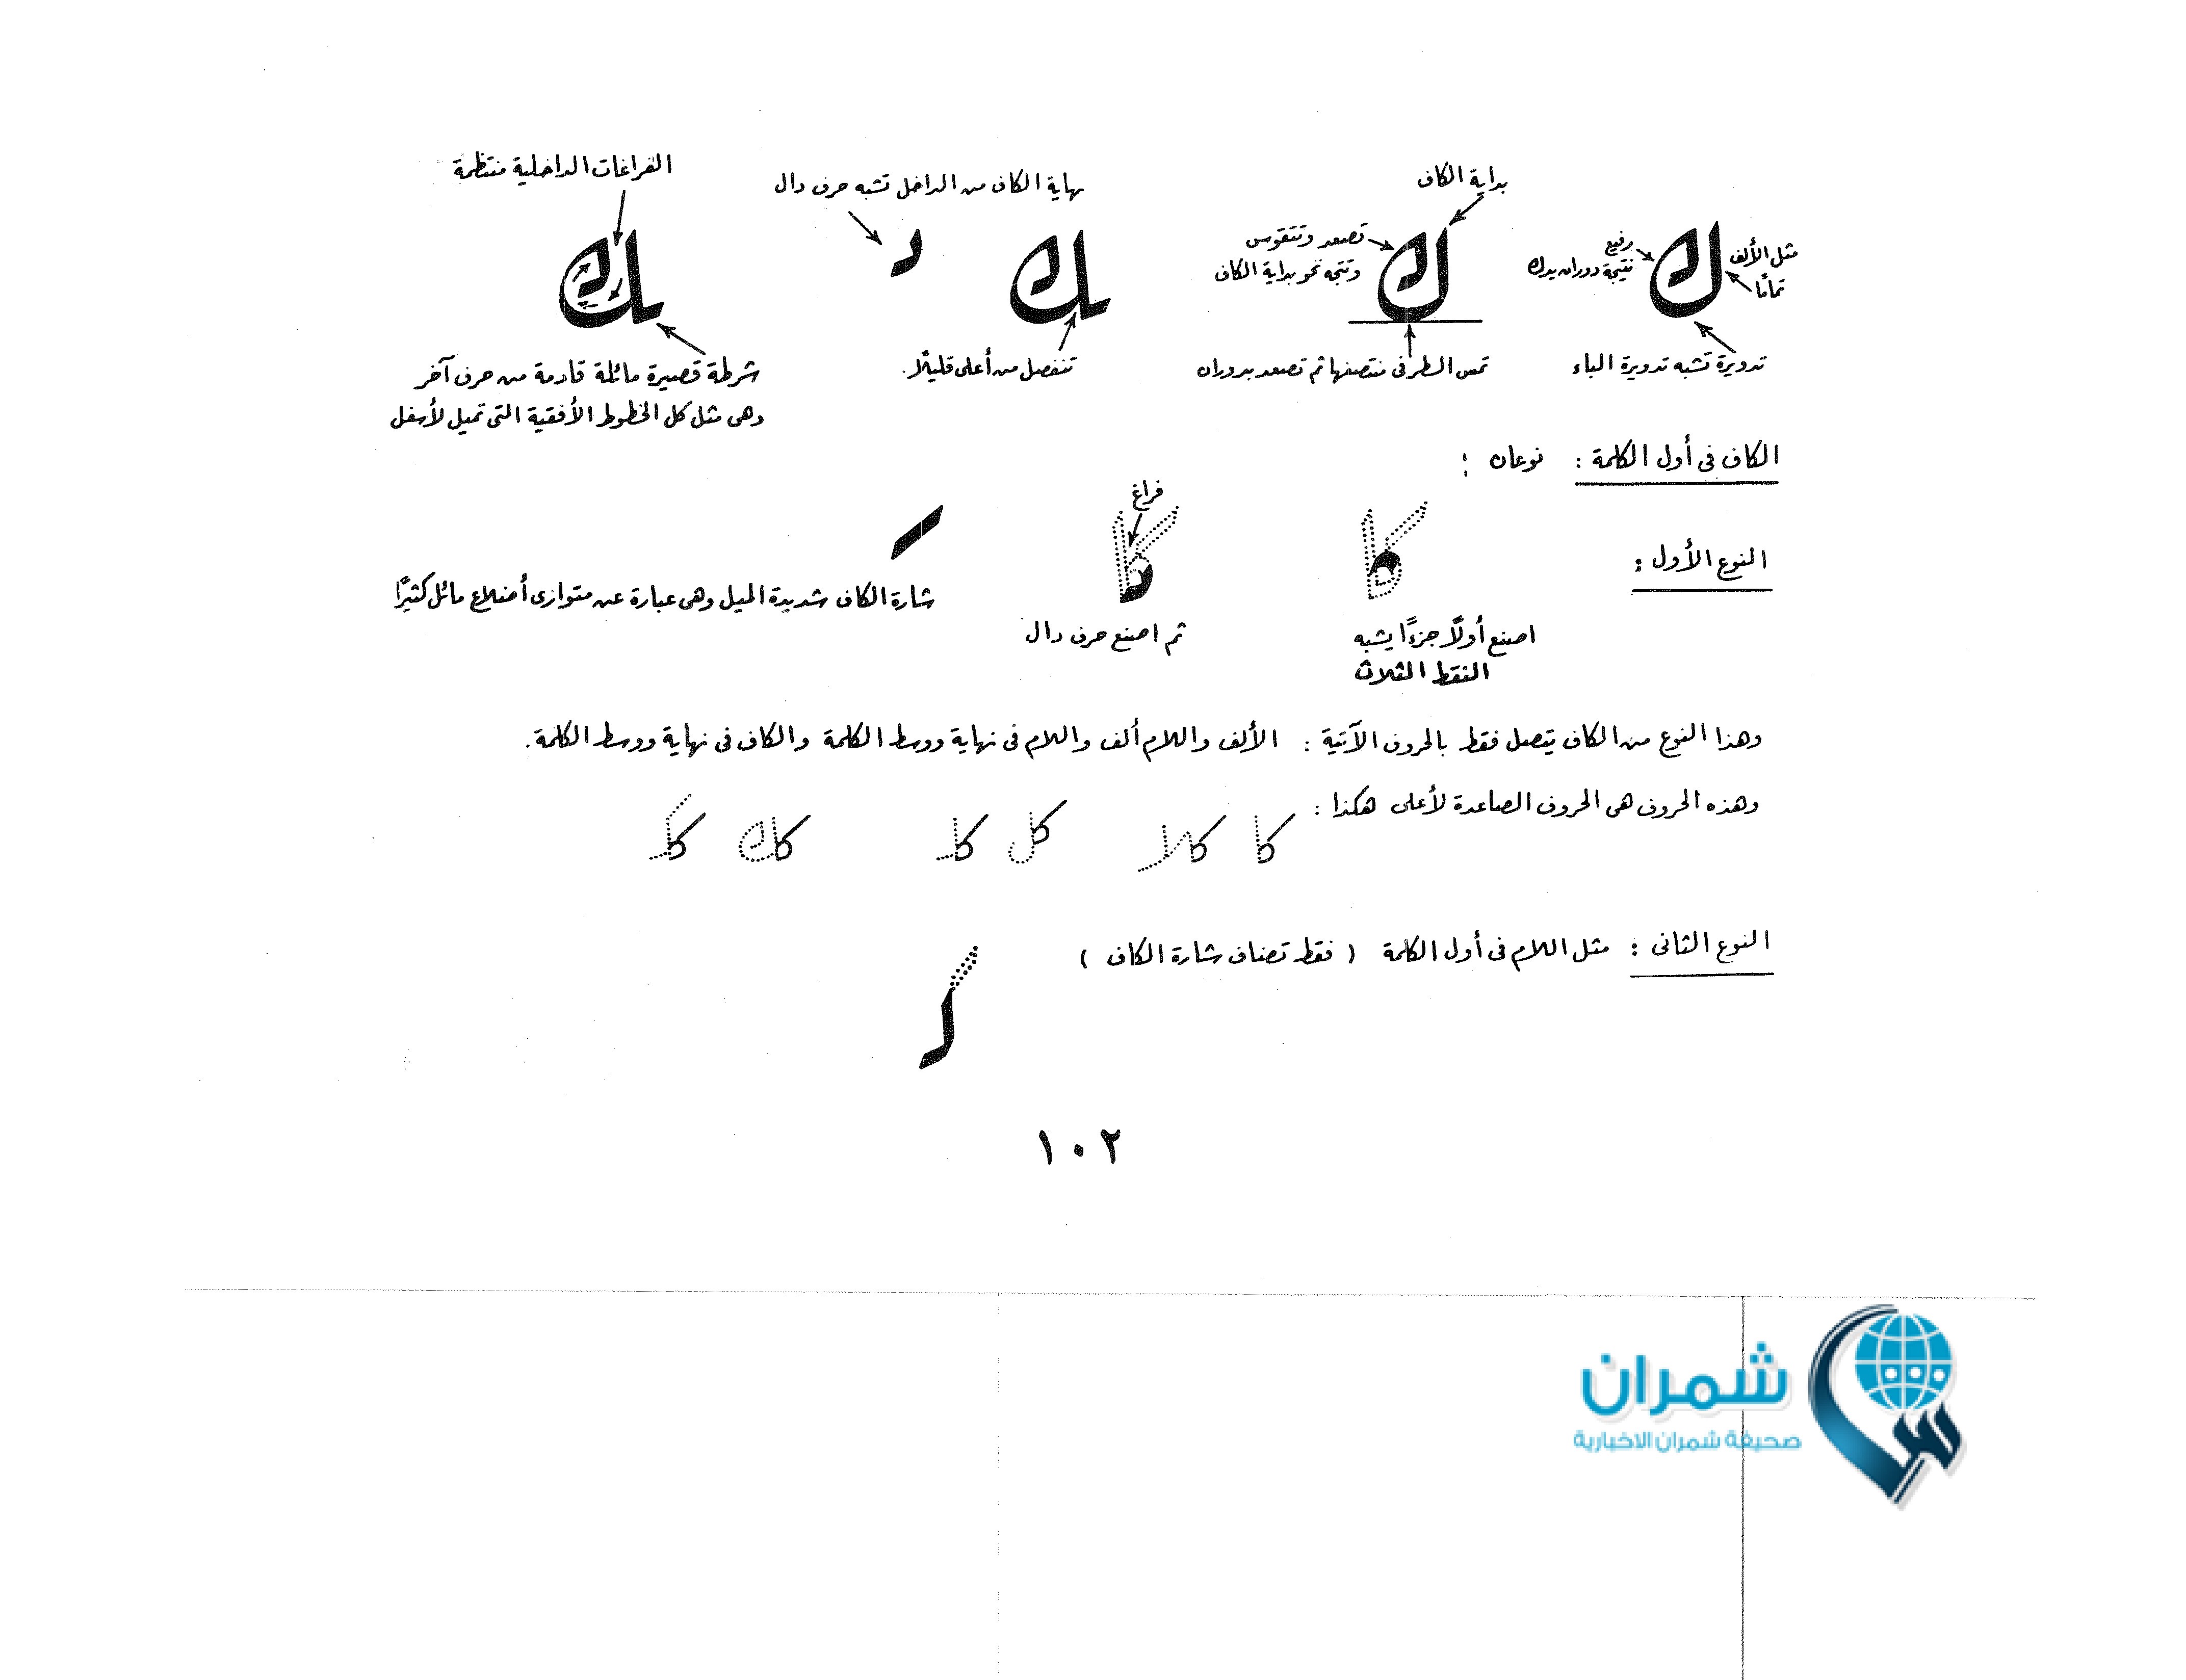 الفراغات الداخلية منتظمة
نهاية الكاف من الداخل تشبه حرف دال
بداية الكاف
مثل الألف
تمامًا
رفيع
نتيجة دوران يدك
تصعد وتتقوس
وتتجه نحو بداية الكاف
ك
ك
ك
د
ك
تدويرة تشبه تدويرة الباء
تمس السطر فى منتصفها ثم تصعد بدوران
تنفصل من أعلى قليلًا.
شرطة قصيرة مائلة قادمة من حرف آخر
وهى مثل كل الخطوط الأفقية التى تميل لأسفل
الكاف فى أول الكلمة : نوعان :
فراغ
النوع الأول :
كا
كا
شارة الكاف شديدة الميل وهى عبارة عن متوازى أضلاع مائل كثيرًا
اصنع أولًا جزءًا يشبه
النقط الثلاث
ثم اصنع حرف دال
وهذا النوع من الكاف يتصل فقط بالحروف الآتية : الألف واللام ألف واللام فى نهاية ووسط الكلمة والكاف فى نهاية ووسط الكلمة.
وهذه الحروف هى الحروف الصاعدة لأعلى هكذا :
كا كلا كل كلـ كك ككـ
النوع الثانى : مثل اللام فى أول الكلمة ( فقط تضاف شارة الكاف )
كـ
١٠٢
شمران
صحيفة شمران الاخبارية